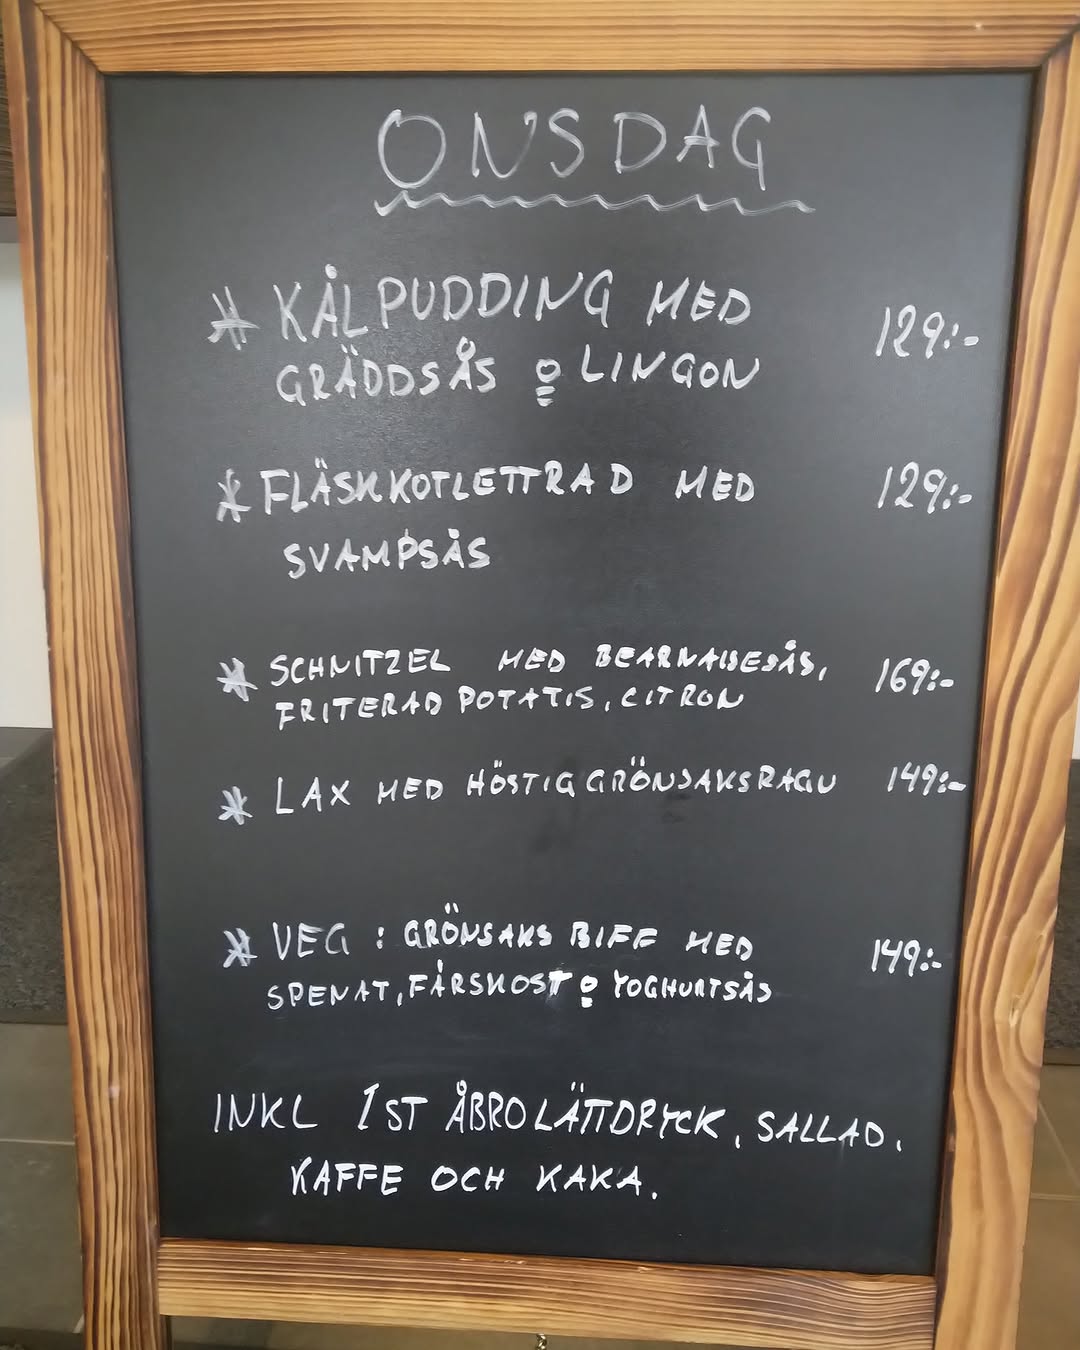 ONSDAG
* KÅLPUDDING MED 129:-
GRÄDDSÅS o LINGON
* FLÄSKKOTLETTRAD MED 129:-
SVAMPSÅS
* SCHNITZEL MED BEARNAISESÅS, 169:-
FRITERAD POTATIS, CITRON
* LAX MED HÖSTIG GRÖNSAKSRAGU 149:-
* VEG : GRÖNSAKS BIFF MED 149:-
SPENAT, FÅRSKOST o YOGHURTSÅS
INKL 1ST ÅBRO LÄTTDRYCK, SALLAD,
KAFFE OCH KAKA.